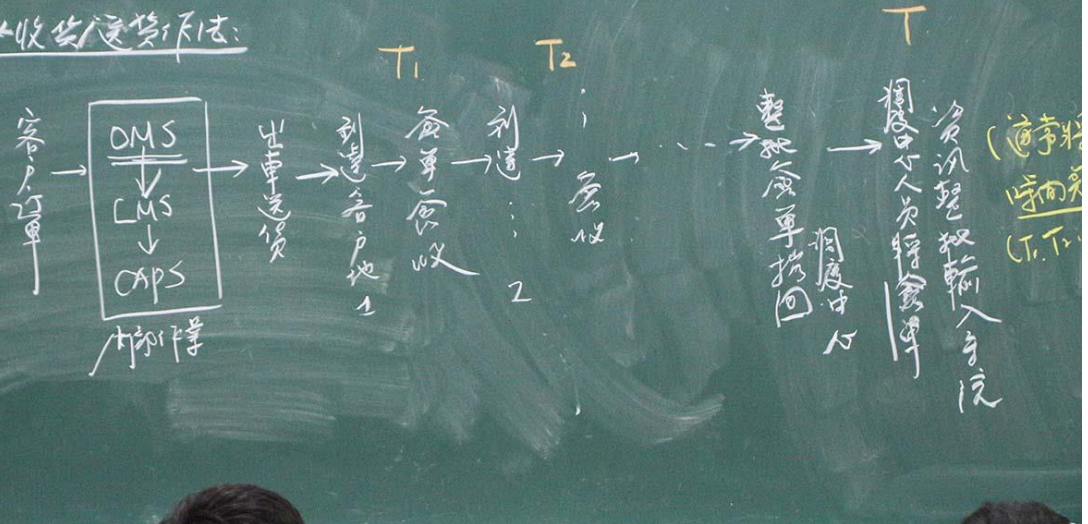 收货/送货作法:
T1
T2
T
客户订单
OMS
LMS
CAPS
内部作業
出車送货
到達客户地1
簽單簽收
到達
2
簽收
整批簽單携回
調度中心
調度中心人員將簽單
資訊整批輸入系統
(通常將
時間差
(T1.T2